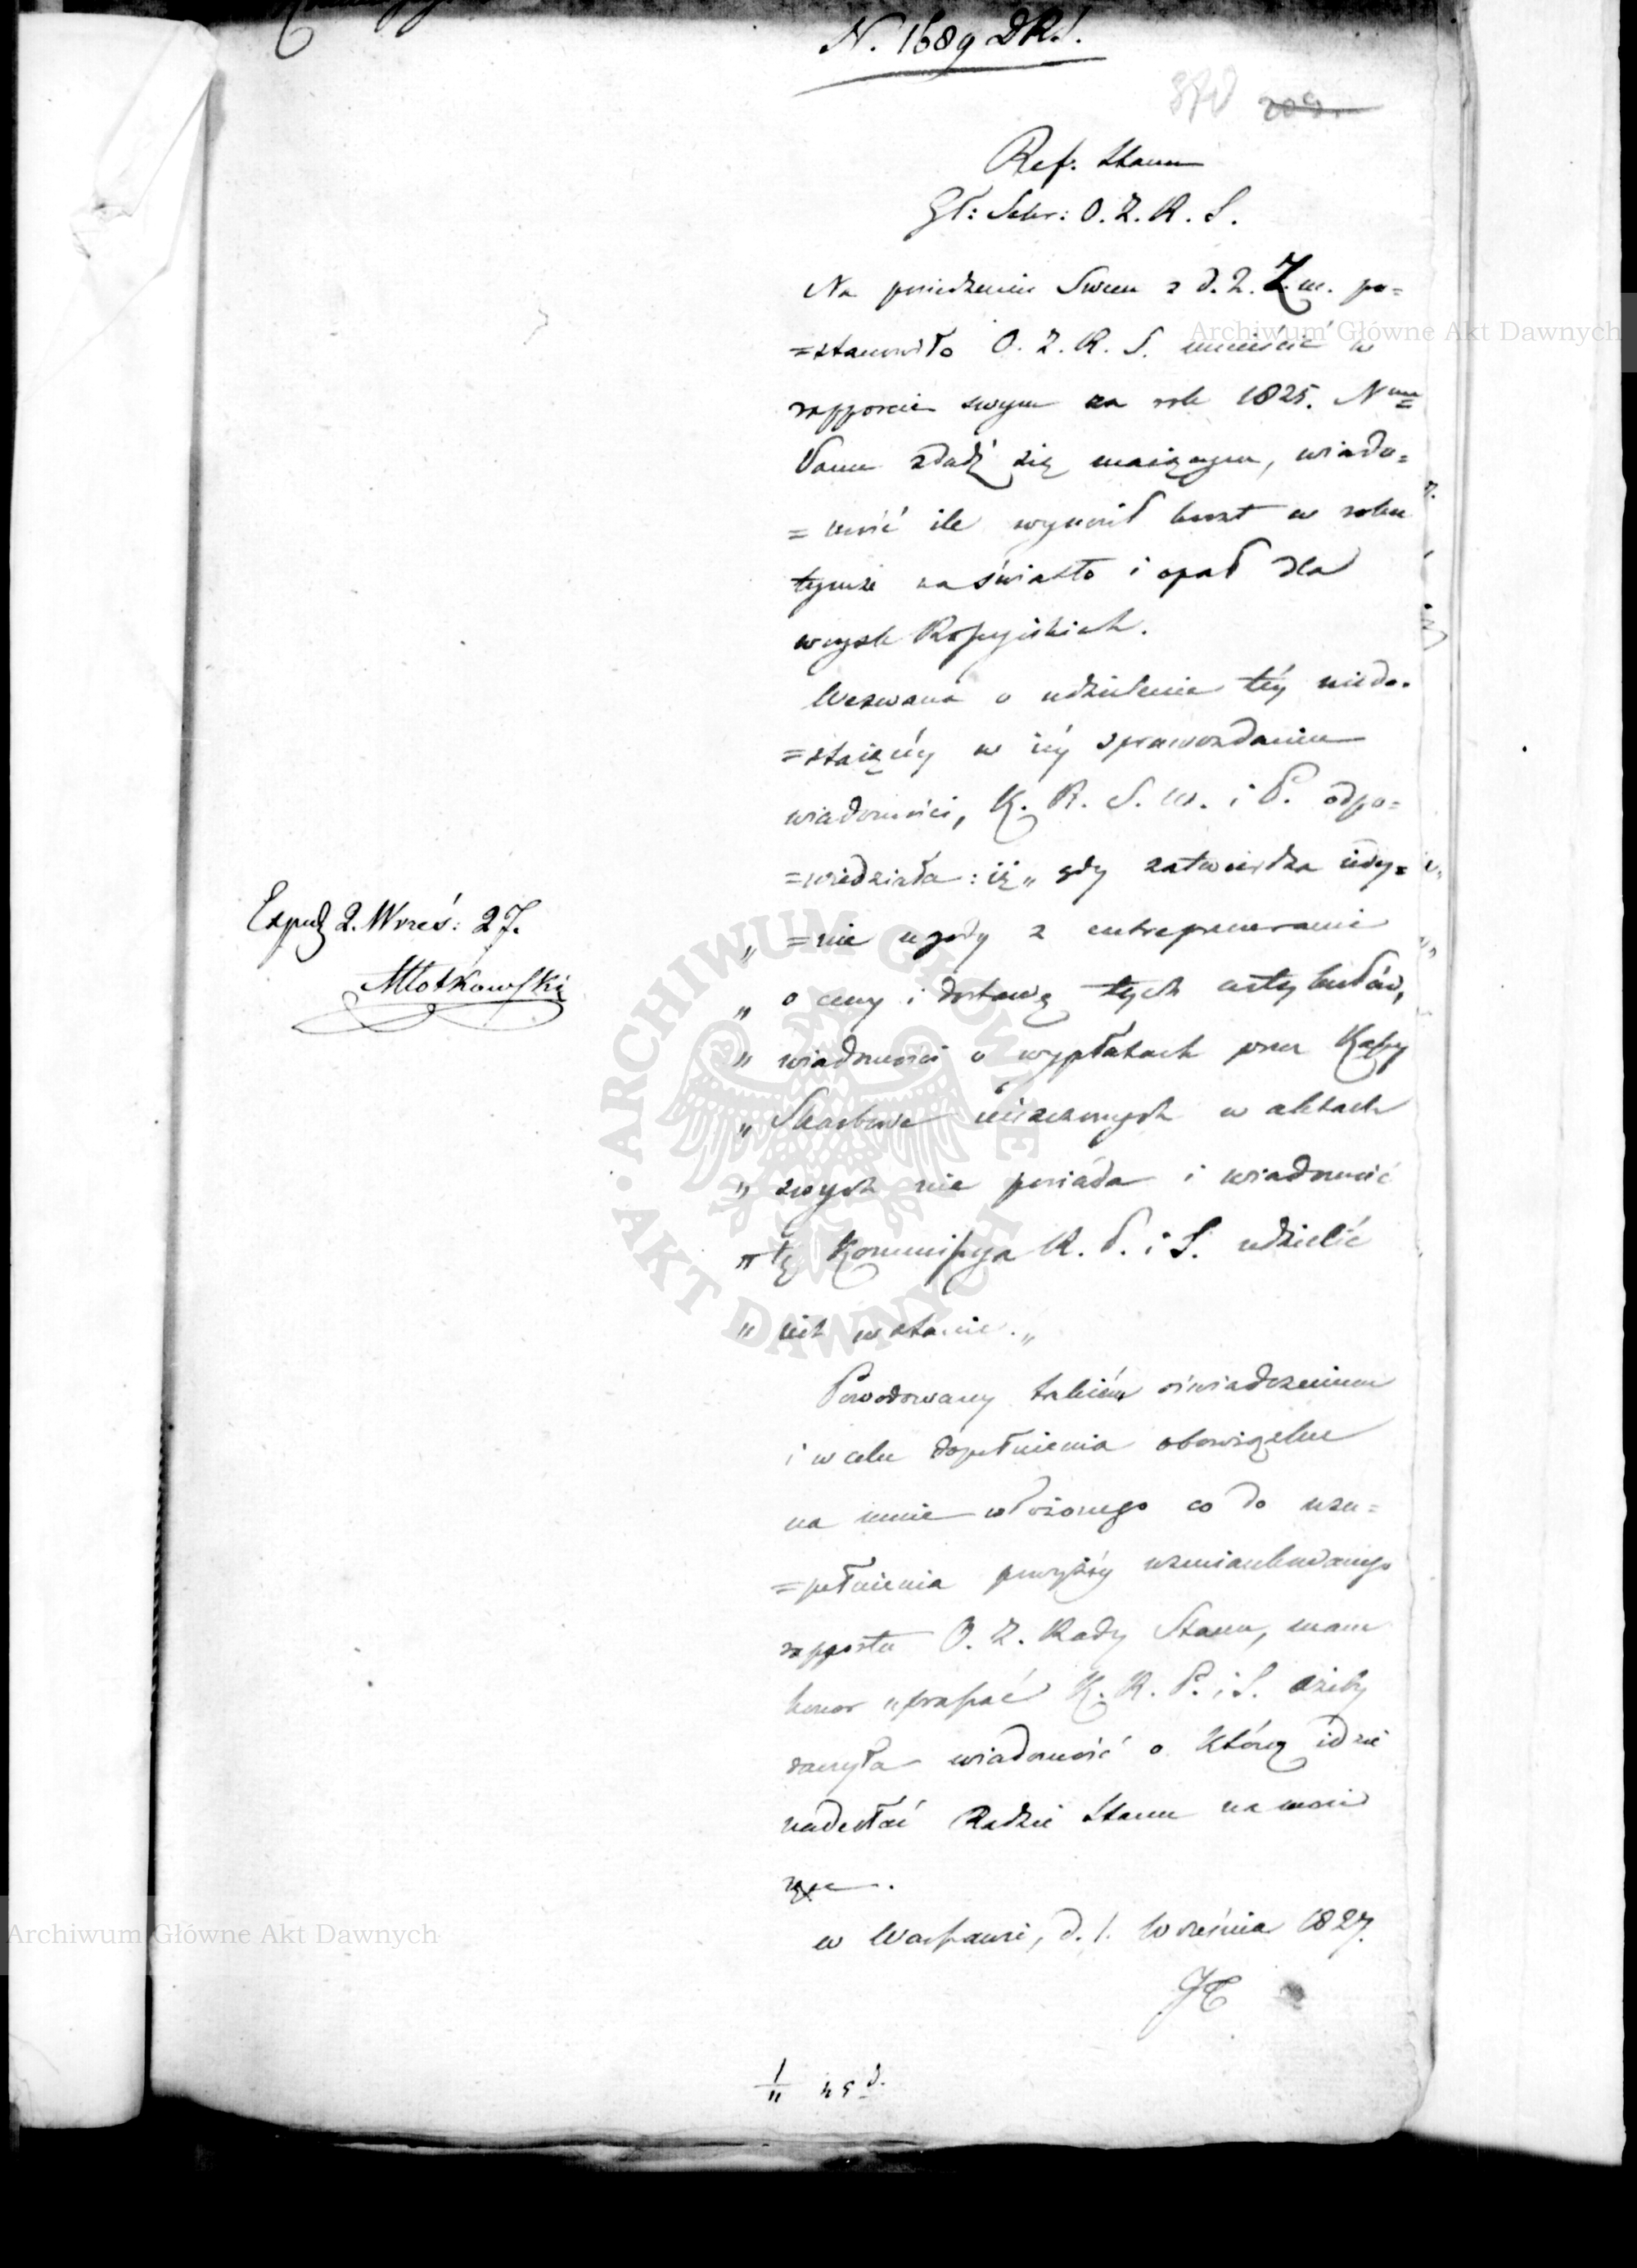 N. 1689 DRS.
870 209
Ref. Stanu
Gł: Sekr: O. Z. R. S.
Na posiedzeniu Swem z d. 2. Z. m. po=
=stanowiło O. Z. R. S. umieścić w
rapporcie swym za rok 1825. N
Panu zdadź się maiącym, wiado=
=mość ile wynosił koszt w roku
tymże na światło i opał dla
woysk Rossyiskich.
Wezwana o udzielenie téy niedo=
=staiącéy w iéy sprawozdaniu
wiadomości, K. R. S. W. i P. odpo=
=wiedziała: iż „ gdy zatwierdza iedy=
„ =nie ugody z entreprenerami
„ o ceny i dostawę tych artykułów,
„ wiadomości o wypłatach przez Kassy
„ Skarbowe uiszczonych w aktach
„ swych nie posiáda i wiadomość
„ tę Kommissya R. P. i S. udzielić
„ iest w stanie.„
Powodowany takiém oświadczeniem
i w celu dopełnienia obowiązku
na mnie włożonego co do uzu=
=pełnienia powyżéy wzmiankowanego
rapportu O. Z. Rady Stanu, mam
honor uprassać K. R. P. i S. ażeby
raczyła wiadomość o którą idzie
nadesłać Radzie Stanu na moie
ręce.
w Warszawie, d. 1. Września 1827.
Exped 2. Wrześ: 27.
Młotkowski
Archiwum Główne Akt Dawnych
Archiwum Główne Akt Dawnych
ARCHIWUM GŁÓWNE AKT DAWNYCH